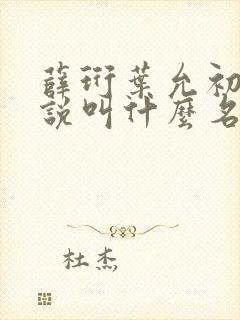 薛衍葉允初
說叫什麼名
杜杰